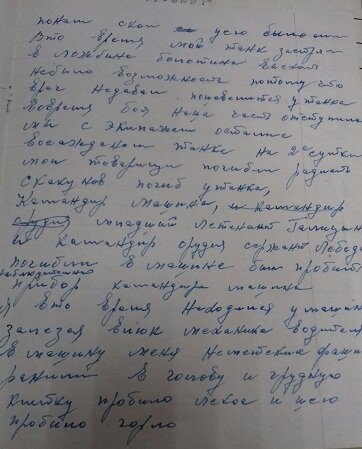 понам скои усо былоси
Вто время мой танк застрял
в ложбине болотина выехат
небыло возможность потому что
враг недавал появится у танка
вовремя боя наша част отступила
мы с экипажем остались
восажденом танке на 2е сутки
мои товарищи погибли радист
скакунов погиб у танка,
Камандир машина,
младший летенант Голицын
и камандир орудия сержант Лебеде
погибли в машине был пробит
наблюдателный
прибор камандира машины
я вто время находился у машин
залезая влюк механика водителя
в машину меня неметские фаши
ранили в голову и грудную
клетку пробило лехкое и шею
пробило горло